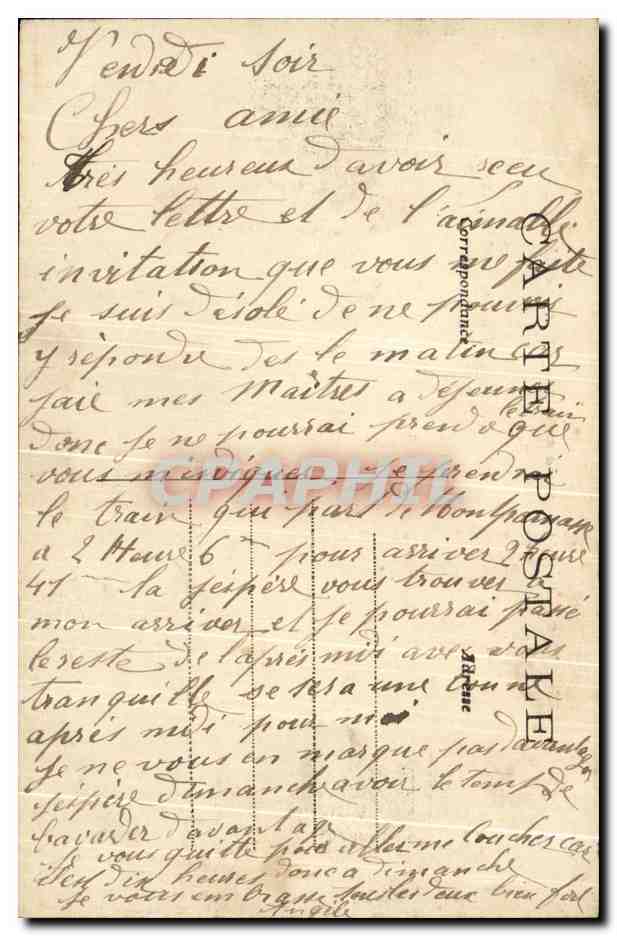 Vendedi soir
Chers amie
très heureux d'avoir recu
votre lettre et de l'aimable
invitation que vous me faite
Je suis désolé de ne pouvoir
y répondre des le matin car
jaie mes Maîtres a déjeuner
donc je ne pourrai prendre le train que
vous mindiquez. Je prendrai
le train qui part de Montparnasse
a 2 Heure 6 m pour arriver 2 heure
41 m la jéspére vous trouver a
mon arriver et je pourrai passé
le reste de l'après midi avec vous
tranquille se sera une bonne
après midi pour moi
Je ne vous en marque pas davantage
jéspère dimanche avoir le temp de
bavarder davantage
Je vous quitte pour aller me coucher car
il est dix heures donc a dimanche
Je vous embrasse tous les deux bien fort
Angèle
CARTE POSTALE
Correspondance
Adresse
CPAPHIL.COM